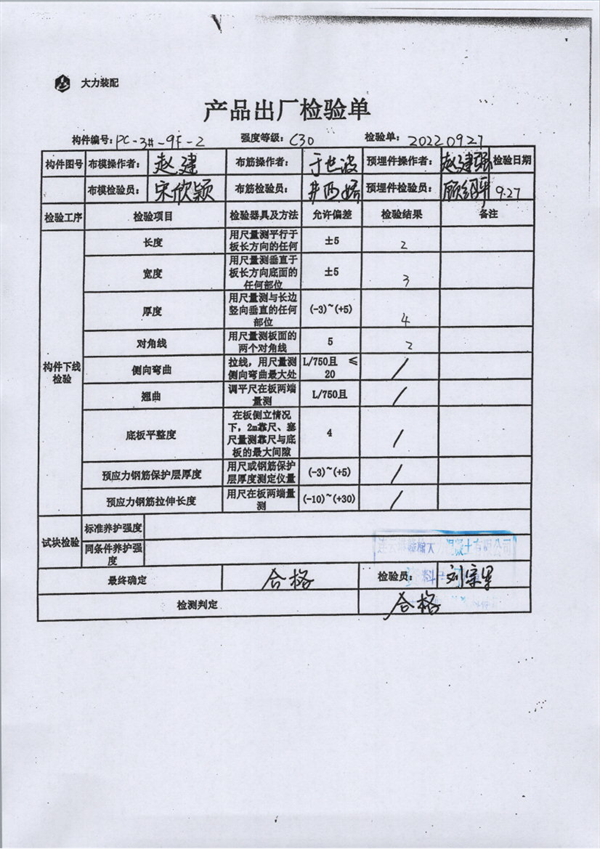 大力装配
产品出厂检验单
构件编号: PC-3#-9F-2 强度等级: C30 检验单: 20220927
构件图号 布模操作者: 赵建 布筋操作者: 于长波 预埋件操作者: 赵建强 检验日期
布模检验员: 宋欣颖 布筋检验员: 预埋件检验员: 9.27
检验工序 检验项目 检验器具及方法 允许偏差 检验结果 备注
构件下线检验
长度 用尺量测平行于板长方向的任何 ±5 2
宽度 用尺量测垂直于板长方向底面的任何部位 ±5 3
厚度 用尺量测与长边竖向垂直的任何部位 (-3)~(+5) 4
对角线 用尺量测板面的两个对角线 5 2
侧向弯曲 拉线，用尺量测侧向弯曲最大处 L/750且 ≤20 /
翘曲 调平尺在板两端量测 L/750且 /
底板平整度 在板侧立情况下，2m靠尺、塞尺量测靠尺与底板的最大间隙 4 /
预应力钢筋保护层厚度 用尺或钢筋保护层厚度测定仪量 (-3)~(+5) /
预应力钢筋拉伸长度 用尺在板两端量测 (-10)~(+30) /
试块检验 标准养护强度
同条件养护强度
最终确定 合格 检验员:
检测判定 合格